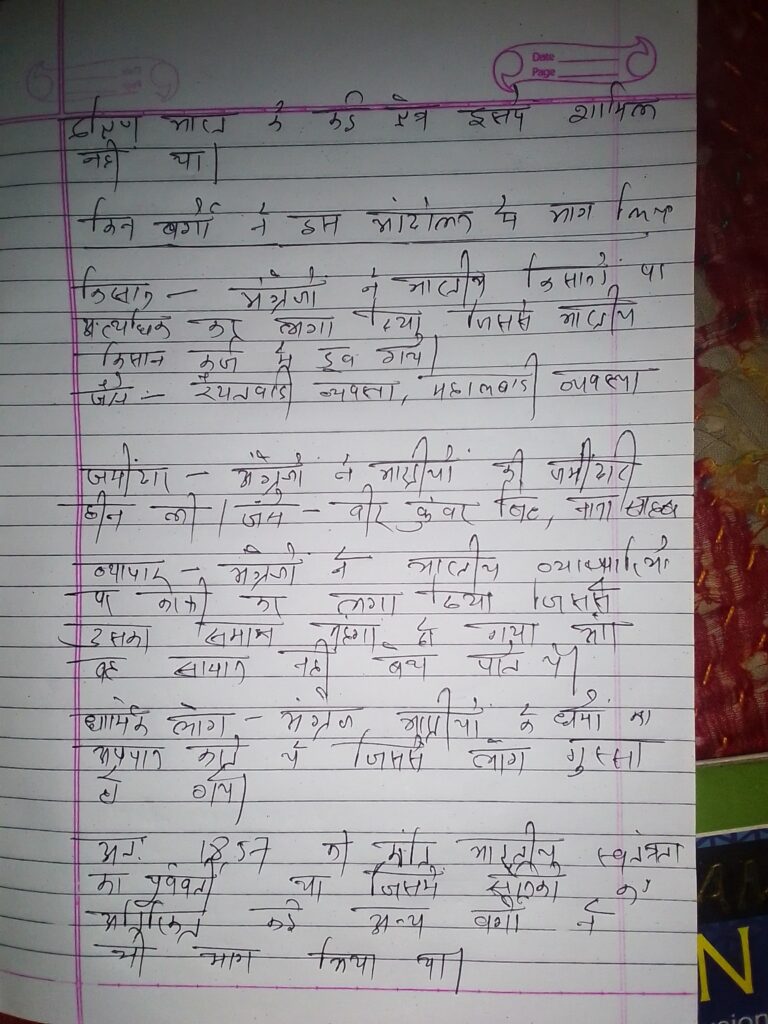 Date
Page
दक्षिण भारत के कई क्षेत्र इसमें शामिल
नही था।
किन वर्गों ने इस आंदोलन में भाग लिया
किसान - अंग्रेजों ने भारतीय किसानों पर
अत्यधिक कर लगा दिया जिससे भारतीय
किसान कर्ज में डूब गये।
जैसे :- रैयतवाडी व्यवस्था, महालवाडी व्यवस्था
जमींदार - अंग्रेजों ने भारतीयों की जमींदारी
छीन ली। जैसे - वीर कुंवर सिंह, नाना साहब
व्यापार - अंग्रेजों ने भारतीय व्यापारियों
पर काफी कर लगा दिया जिससे
उसका समान महंगा हो गया और
वह सामान नही बेच पाते थे।
धार्मिक लोग - अंग्रेज भारतीयों के धर्मों का
अपमान करते थे जिससे लोग गुस्सा
हो गये।
अतः 1857 की क्रांति भारतीय स्वतंत्रता
का पूर्ववर्ती था जिसमें सैनिकों के
अतिरिक्त कई अन्य वर्गों ने
भी भाग लिया था।
N